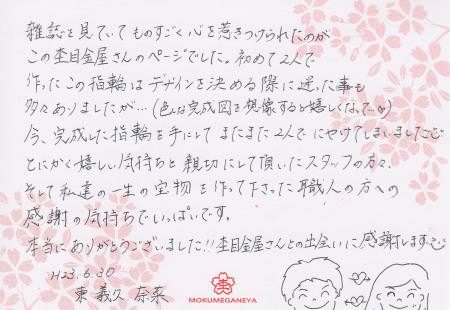 雑誌を見ていてものすごく心を惹きつけられたのが
この杢目金屋さんのページでした。初めて2人で
作ったこの指輪はデザインを決める際に迷った事も
多々ありましたが…(色んな完成図を想像すると嬉しくなって…♡)
今、完成した指輪を手にして またまた2人で にやけてしまいました
とにかく嬉しい気持ちと 親切にして頂いたスタッフの方々、
そして私達の一生の宝物 を作って下さった 職人の方への
感謝の気持ちでいっぱいです。
本当にありがとうございました!! 杢目金屋さんとの出会いに感謝します
H23.6.30
東 義久 奈菜
MOKUMEGANEYA